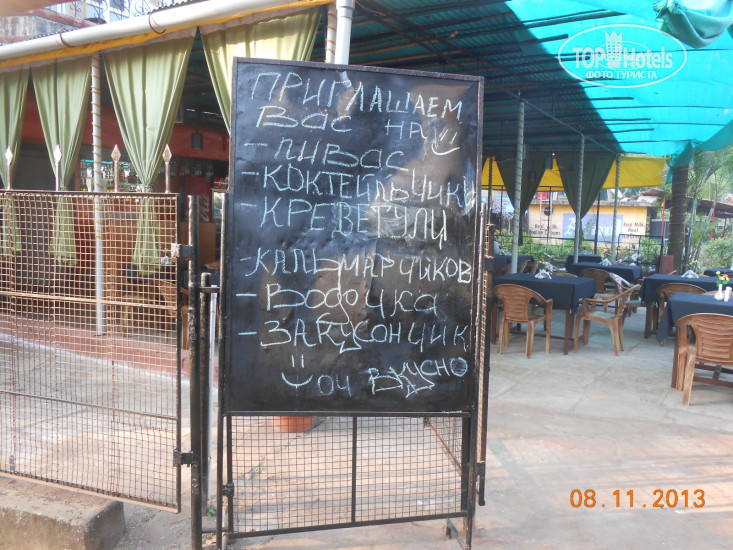 TOP Hotels
ФОТО ТУРИСТА
ПРИГЛАШАЕМ
ВАС НА
- ПИВАС
- КОКТЕЙЛЬЧИКИ
- КРЕВЕТУЛИ
- КАЛЬМАРЧИКОВ
- ВОДОЧКА
- ЗАКУСОНЧИК
ОЧ ВКУСНО
08.11.2013